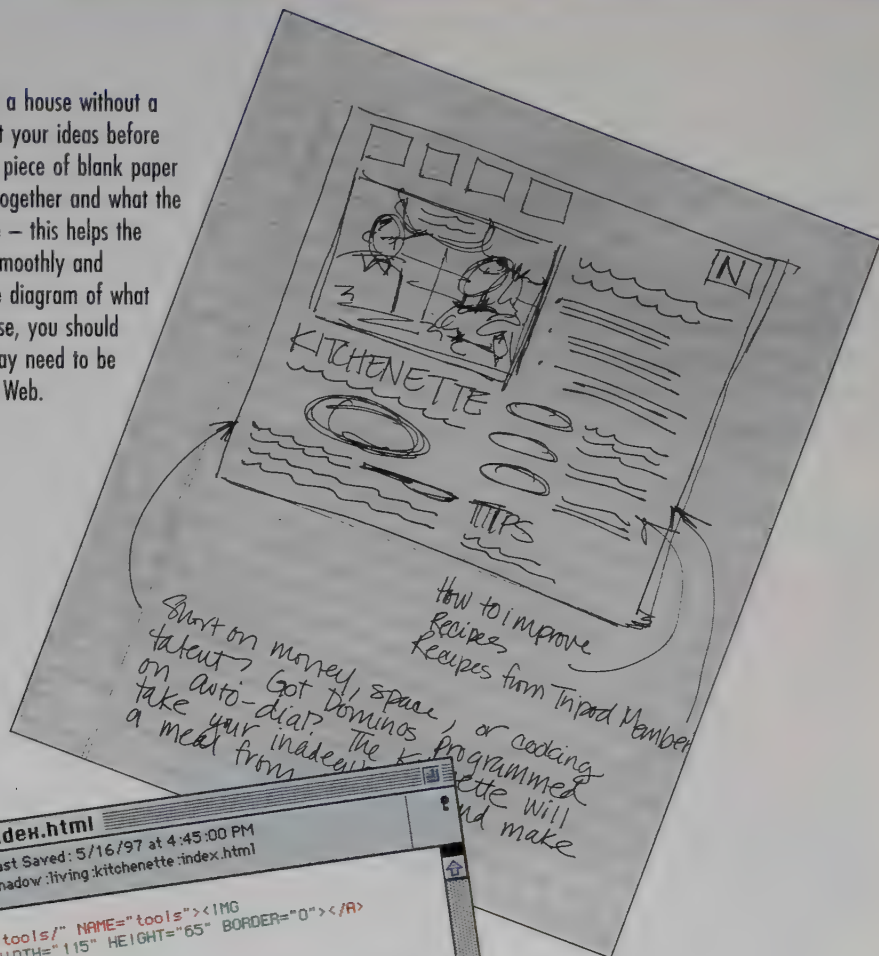 a house without a
t your ideas before
piece of blank paper
ogether and what the
– this helps the
moothly and
e diagram of what
se, you should
ay need to be
Web.
N
3
KITCHENETTE
TIPS
How to improve
Recipes
Recipes from Tripod Member
Short on money, space, or cooking
talent? Got Dominos programmed
on auto-dial? The K ette will
take your inadequ nd make
a meal from
dex.html
ast Saved: 5/16/97 at 4:45:00 PM
hadow :living :kitchenette :index.html
tools/" NAME="tools"><IMG
IDTH="115" HEIGHT="65" BORDER="0"></A>